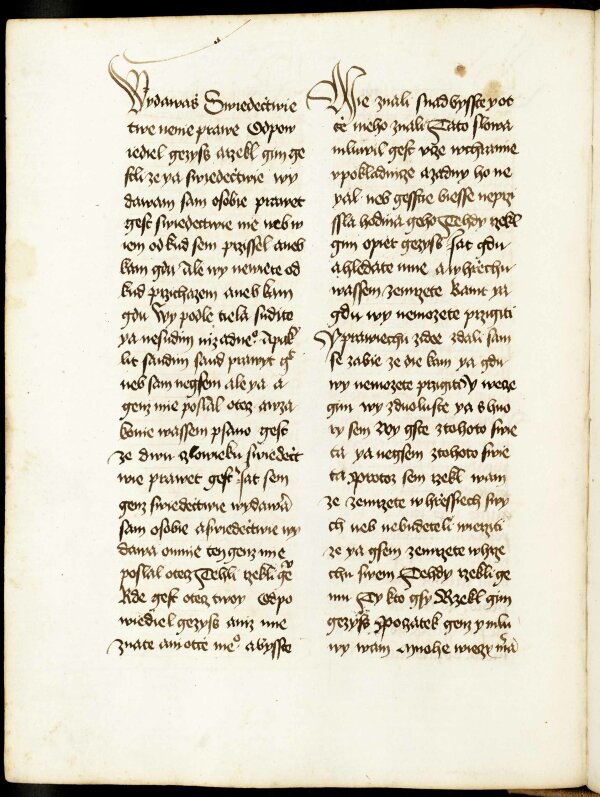 Wydawaš Swiedectwie
twe nenie prawe Odpow
iediel gezyss arzekl gim ge
stli ze ya swiedectwie wy
dawam sam osobie prawet
gest swiedectwie me neb w
iem od kud sem przissel aneb
kam gdu Ale wy newiete od
kud przichazem aneb kam
gdu Wy podle tiela sudite
ya nesudim nizadneº Apak
lit saudim saud prawyt gt
neb sam negsem ale ya a
genz mie poslal otecz awza
konie wassem psano gest
ze dwu zlowieku swiedect
wie prawet gest Jat sem
genz swiedectwie wydawa
sam osobie aswiedectwie wy
dawa omnie ten genz mie
poslal otecz Tehdi rzekli ge
Kde gest otecz twoy Odpo
wiediel gezyss ani mne
znate ani otce meº abysste
Mie znali snad byste y ot
ce meho znali Tato slowa
mluwil gest gezis wchramie
vpokladnicze azadny ho ne
yal neb gesstie biesse neprzi
ssla hodina geho Tehdy rzekl
gim opiet gezyss Jat gdu
ahledate mne awhrziechu
wassem zemrzete Kamt ya
gdu wy nemozete przigiti
Y prawiechu zide zdali sam
se zabie ze die kam ya gdu
wy nemozete przigiti Y wece
gim wy zduoluste ya shuo
ry sem Wy gste ztohoto swie
ta ya negsem ztohoto swie
ta Protoz sem rzekl wam
ze zemrzete whrziessiech swy
ch neb nebudeteli wierziti
ze ya gsem zemrzete whrzie
chu swem Tehdy rzekli ge
mu Ty kto gsy Rzekl gim
gezyss Poczatek genz ymlu
wy wam Mnohe wiecy ma